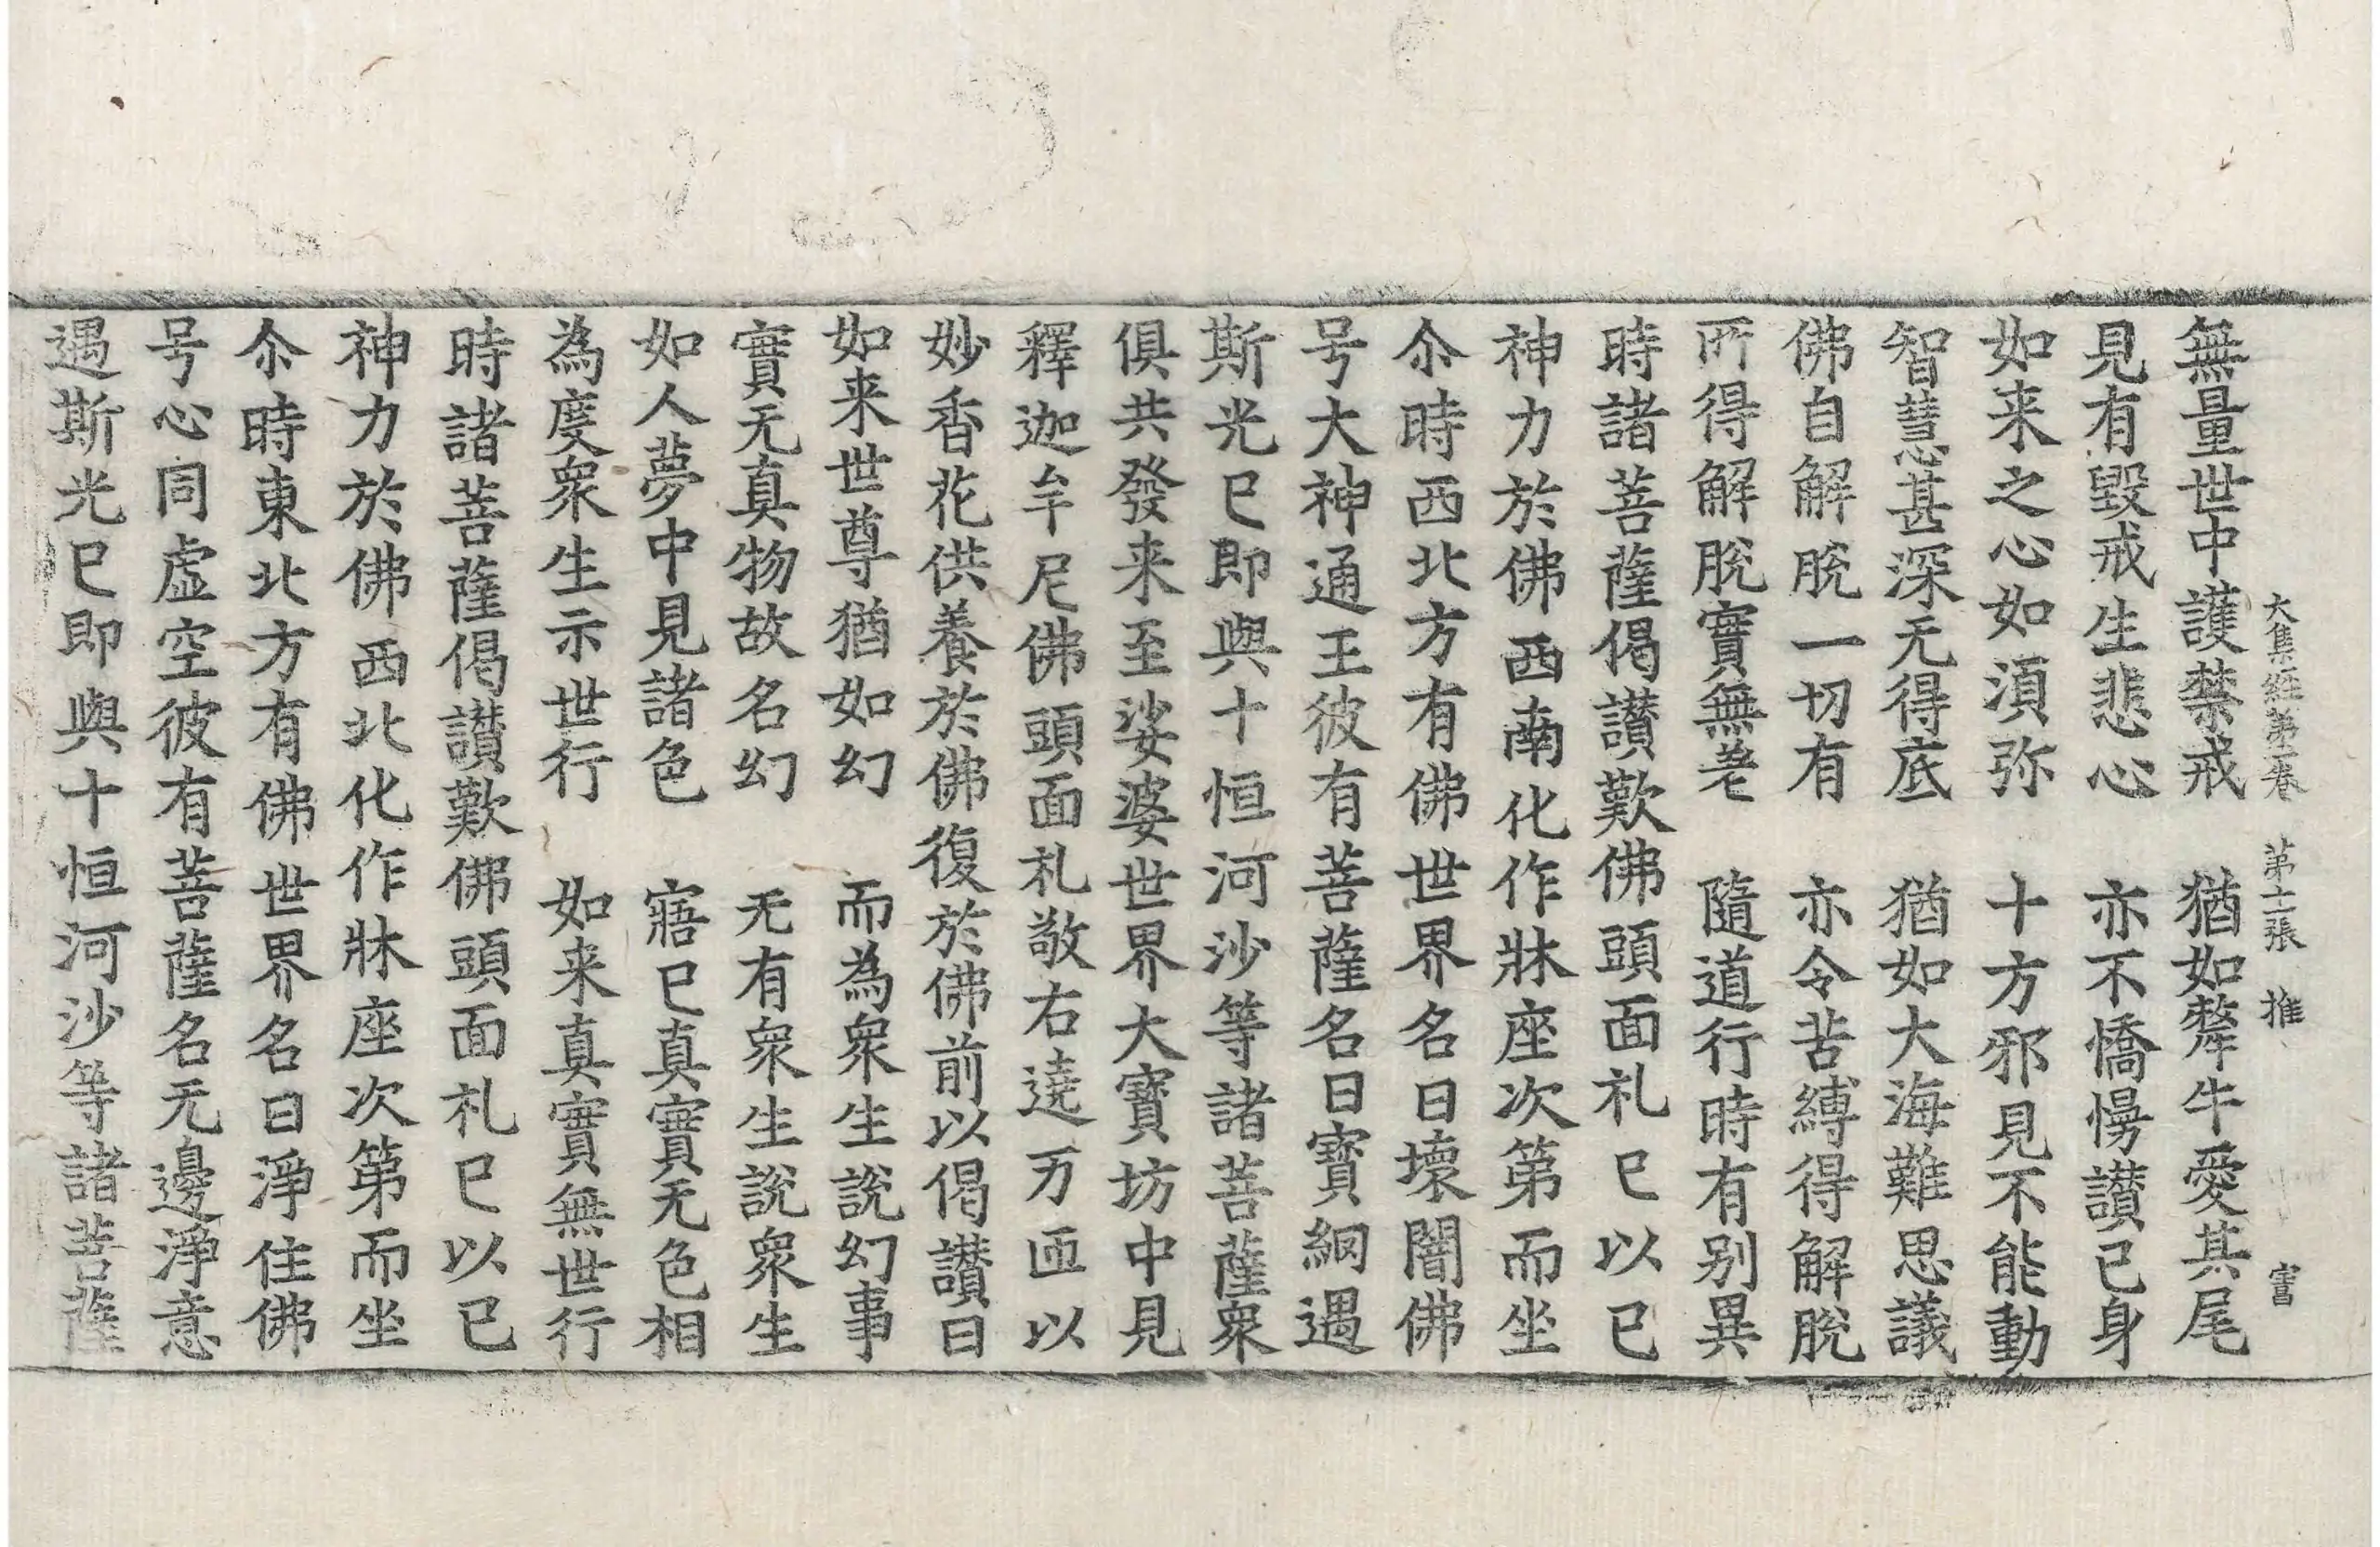 大集経第一卷　第十二張　推　富
無量世中護禁戒　猶如犛牛愛其尾
見有毀戒生悲心　亦不憍慢讃己身
如来之心如湏弥　十方邪見不能動
智慧甚深无得底　猶如大海難思議
佛自解脫一切有　亦令苦縛得解脫
所得解脫實無差　隨道行時有别異
時諸菩薩偈讃歎佛頭面礼已以已
神力於佛西南化作牀座次第而坐
尒時西北方有佛世界名曰壞闇佛
号大神通王彼有菩薩名曰寶網遇
斯光已即與十恒河沙等諸菩薩衆
俱共發来至娑婆世界大寶坊中見
釋迦牟尼佛頭面礼敬右遶万匝以
妙香花供養於佛復於佛前以偈讃曰
如来世尊猶如幻　而為衆生說幻事
實无真物故名幻　无有衆生說衆生
如人夢中見諸色　寤已真實无色相
為度衆生示世行　如来真實無世行
時諸菩薩偈讃歎佛頭面礼已以已
神力於佛西北化作牀座次第而坐
尒時東北方有佛世界名曰淨住佛
号心同虚空彼有菩薩名无邊淨意
遇斯光已即與十恒河沙等諸菩薩